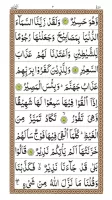 وَهُوَ حَسِيْرٌ ۝ وَلَقَدْ زَيَّنَّا السَّمَآءَ
الدُّنْيَا بِمَصَابِيْحَ وَجَعَلْنٰهَا رُجُوْمًا
لِّلشَّيٰطِيْنِ وَاَعْتَدْنَا لَهُمْ عَذَابَ
السَّعِيْرِ ۝ وَلِلَّذِيْنَ كَفَرُوْا بِرَبِّهِمْ
عَذَابُ جَهَنَّمَ ؕ وَبِئْسَ الْمَصِيْرُ ۝
اِذَآ اُلْقُوْا فِيْهَا سَمِعُوْا لَهَا شَهِيْقًا
وَّهِيَ تَفُوْرُ ۝ تَكَادُ تَمَيَّزُ مِنَ
الْغَيْظِ ؕ كُلَّمَآ اُلْقِيَ فِيْهَا فَوْجٌ سَاَلَهُمْ
خَزَنَتُهَآ اَلَمْ يَاْتِكُمْ نَذِيْرٌ ۝ قَالُوْا
بَلٰى قَدْ جَآءَنَا نَذِيْرٌ ۙ فَكَذَّبْنَا
وَقُلْنَا مَا نَزَّلَ اللّٰهُ مِنْ شَيْءٍ